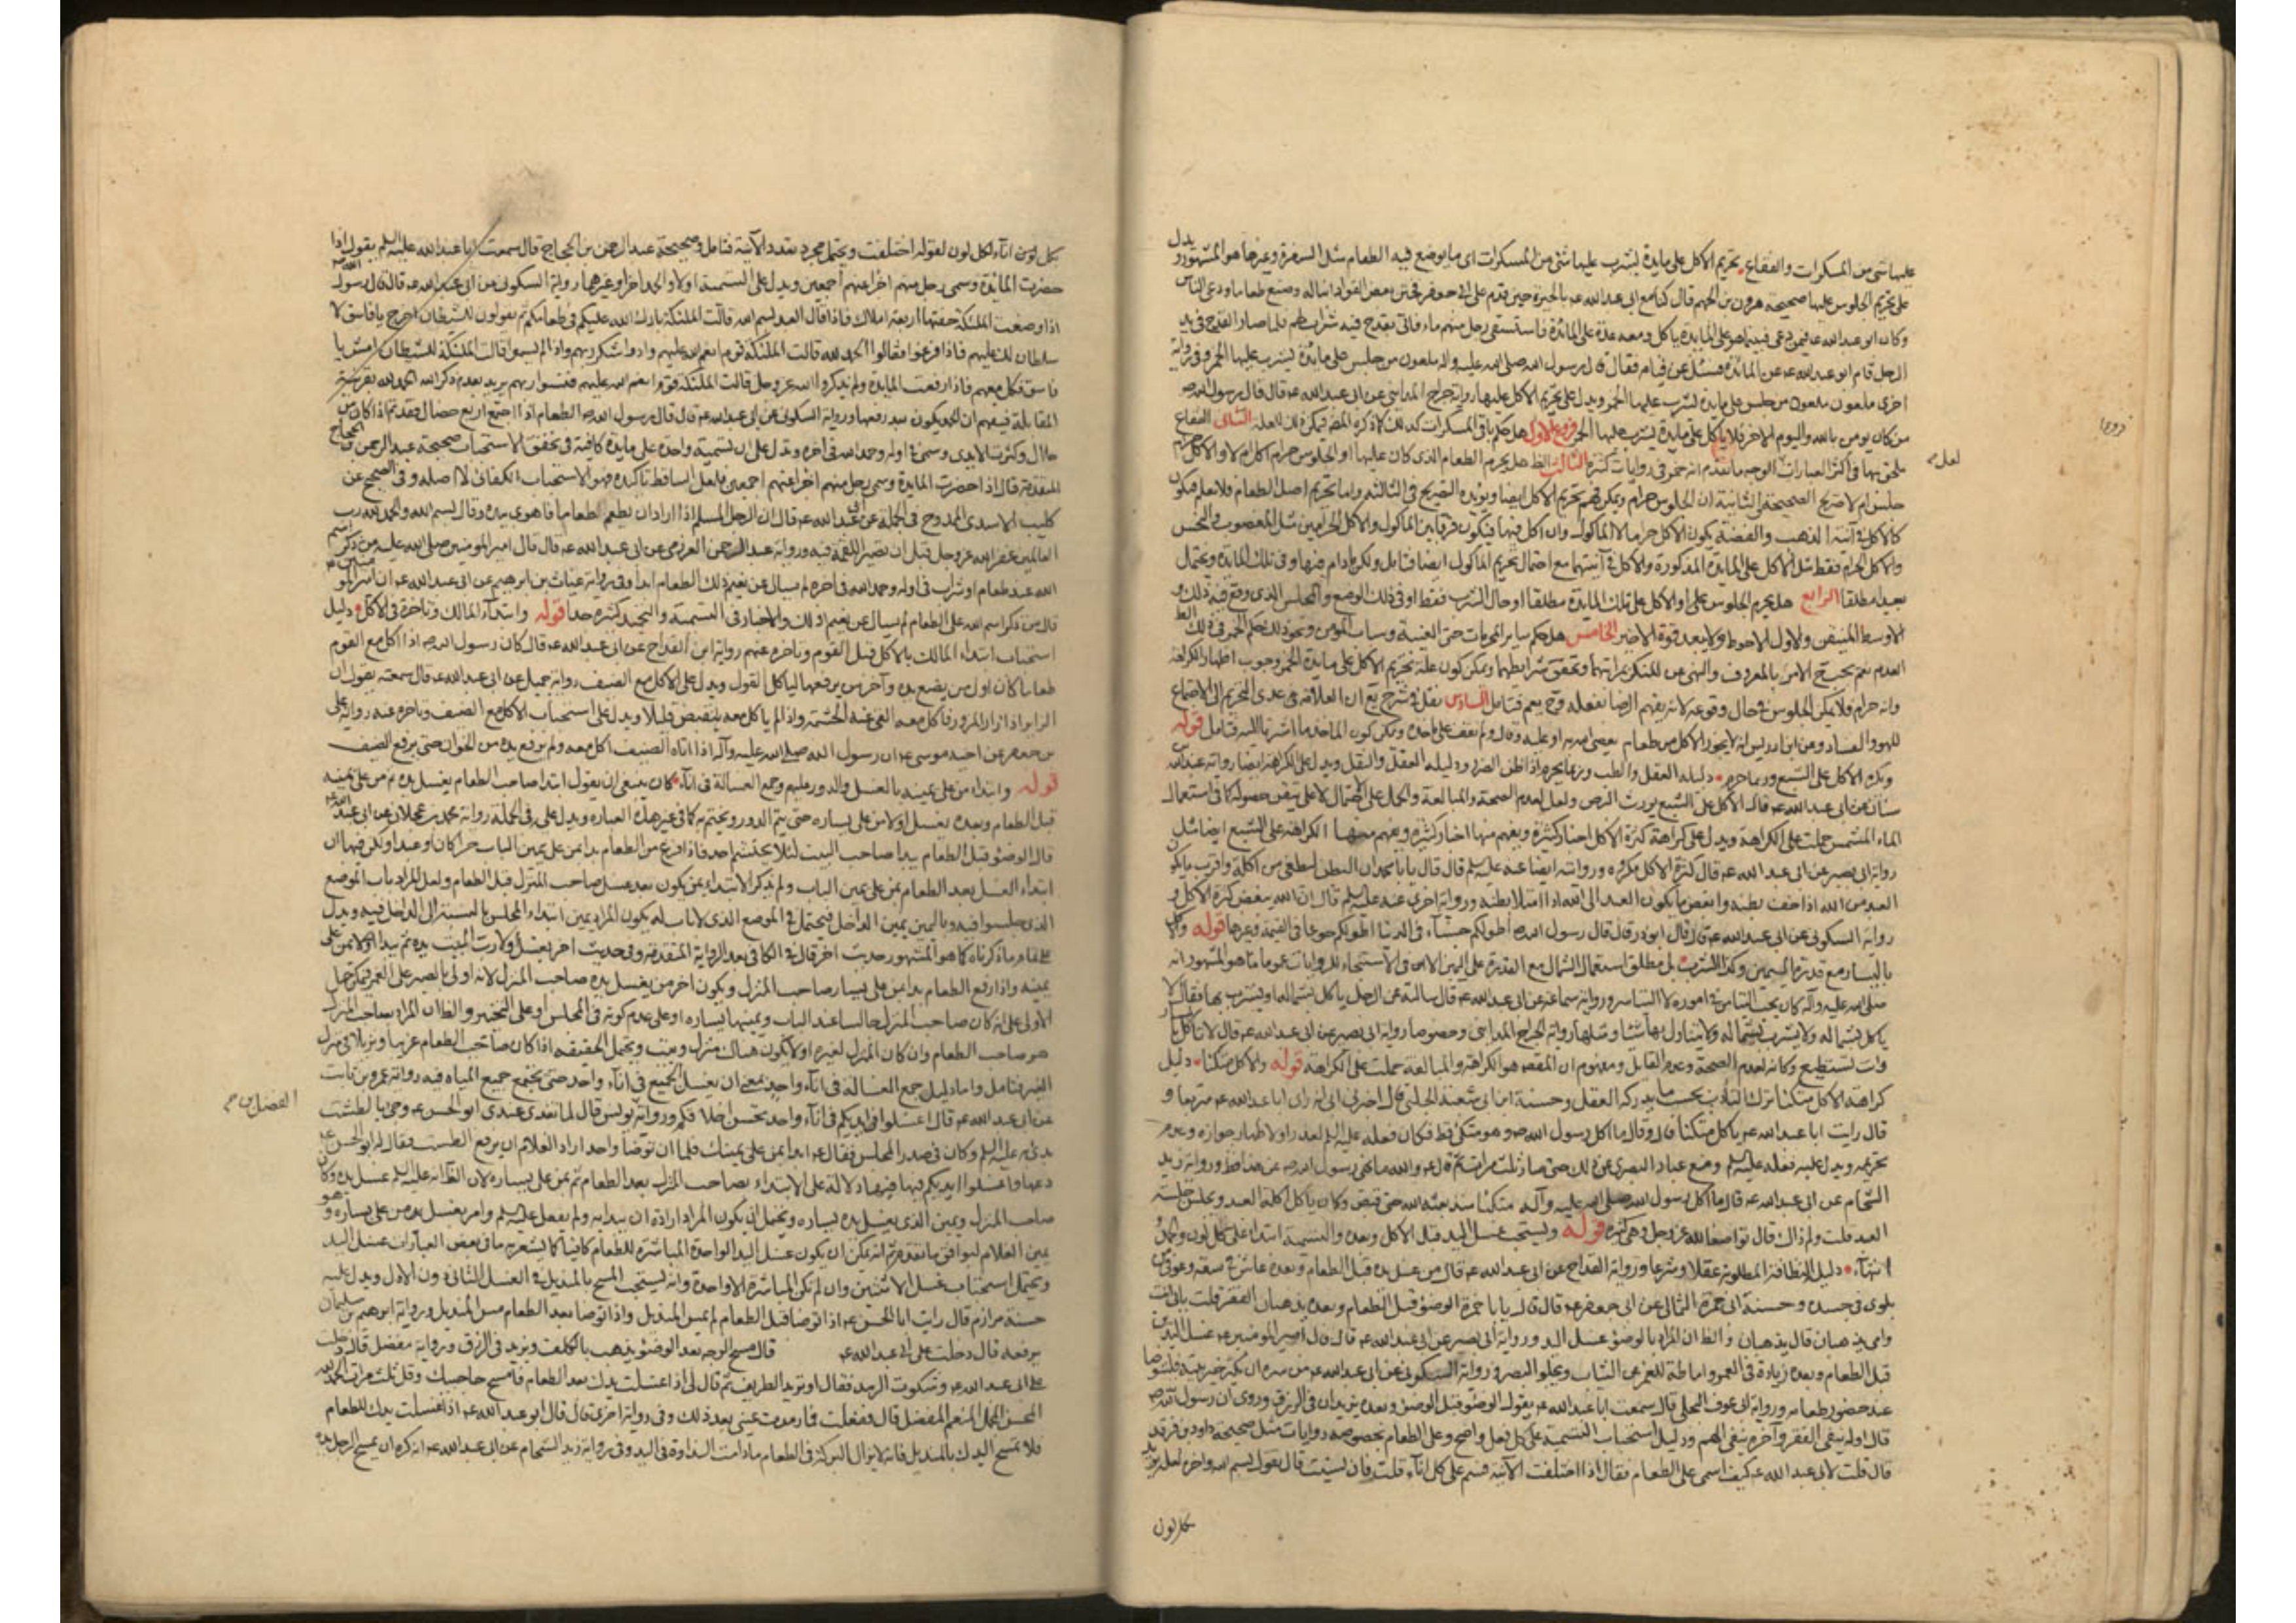 عليها شئ من المسكرات والفقاع تحريم الاكل على مايدة يشرب عليها شئ من المسكرات اى ما يوضع فيه الطعام مثل السفرة وغيرها هو المشهور و يدل
على تحريم الجلوس عليها صحيحة هرون بن الجهم قال كنا مع ابى عبد الله عه بالحيرة حين قدم على ابى جعفر فختن بعض القواد ابنا له وصنع طعاما ودعى الناس
وكان ابو عبد الله عه فيمن دعى فبينا هو على المايدة ياكل ومعه عدة على المائدة فاستسقى رجل منهم ماء فاتى بقدح فيه شراب لهم فلما صار القدح فى يد
الرجل قام ابو عبد الله عه عن المائدة فسئل عن قيامه فقال قال رسول الله صلى الله عليه واله ملعون من جلس على مائدة يشرب عليها الخمر وفى رواية
اخرى ملعون ملعون من جلس على مايدة يشرب عليها الخمر ويدل على تحريم الاكل عليها رواية جراح المداينى عن ابى عبد الله عه قال قال رسول الله ص
من كان يومن بالله واليوم الاخر فلا ياكل على مايدة يشرب عليها الخمر فروع الاول هل حكم باقى المسكرات كذلك الثانى الفقاع
ملحق بها فى اكثر العبارات الوجه ما تقدم انه خمر فى روايات كثيرة الثالث الظ هل يحرم الطعام الذى كان عليها او الجلوس حرام
جلس ام لا صريح الصحيحة الثانية ان الجلوس حرام ويمكن فهم تحريم الاكل ايضا ويؤيده التصريح فى الثالثة واما تحريم اصل الطعام فلا نعلم فيكون
كالاكل فى آنية الذهب والفضة يكون الاكل حراما لا الماكول
والاكل الحرام فقط مثل الاكل على المايدة المذكورة والاكل فى آنيتهما مع احتمال تحريم الماكول ايضا فتامل
بعيد مطلقا الرابع هل يحرم الجلوس على او الاكل على تلك المايدة مطلقا او حال الشرب فقط او فى ذلك الوضع والمجلس الذى وقع فيه ذلك
الاوسط المتيقن والاول الاحوط ولا يبعد قوة الاخير الخامس هل حكم ساير المحرمات حتى الغيبة وسباب المومن ونحو ذلك حكم الخمر فى ذلك الظ
العدم نعم يجب ح الامر بالمعروف والنهى عن المنكر بمراتبهما وتحقق شرايطهما ويمكن كون علة تحريم الاكل على مايدة الخمر وجوب اظهار الكراهة
وانه حرام فلا يمكن الجلوس فى حال وقوعه لانه يفهم الرضا بفعله فح يعم فتامل السادس نقل فى شرح يع ان العلامة ره عدى التحريم الى الاجتماع
للهو والفساد وعن ابن ادريس انه لا يجوز الاكل من طعام يعصى الله به او عليه وقال ولم نقف على ماخذه قوله
ويكره الاكل على الشبع وربما حرم دليله العقل والطب وربما يحرم اذا ظن الضرر ودليله العقل والنقل ويدل على الكراهة ايضا رواية عبد الله
سنان عن ابى عبد الله عه قال الاكل على الشبع يورث البرص ولعل لعدم الصحة والمبالغة والحمل على الاحتمال لا على تيقن حصوله كما فى استعمال
الماء المشمس حملت على الكراهة ويدل على كراهة كثرة الاكل اخبار كثيرة ويفهم منها الكراهة على الشبع ايضا مثل
رواية ابى بصير عن ابى عبد الله عه قال كثرة الاكل مكروه وروايته ايضا عنه عليه السلم قال قال يا با محمد ان البطن ليطغى من اكله واقرب ما يكون
العبد من الله اذا خف بطنه وابغض ما يكون العبد الى الله اذا امتلا بطنه ورواية اخرى عنه عليه السلم قال ان الله يبغض كثرة الاكل و
رواية السكونى عن ابى عبد الله عه قال قال ابو ذر قال قال رسول الله ص اطولكم جشاء فى الدنيا اطولكم جوعا فى القيمة وغيرها قوله والاكل
باليسار مع قدرة اليمين وكذا الشرب بل مطلق استعمال الشمال مع القدرة على اليمين الا فى الاستنجاء للروايات عموما ما هو المشهور انه
صلى الله عليه واله كان يحب التيامن فى اموره لا التياسر ورواية سماعة عن ابى عبد الله عه قال سالته عن الرجل ياكل بشماله او يشرب بها فقال لا
ياكل بشماله ولا يشرب بشماله ولا يتناول بها شيئا ومثلها رواية الجراح المداينى وخصوصا رواية ابى بصير عن ابى عبد الله عه قال لا تاكل باليسار
وانت تستطيع وكانه لعدم الصحة وعدم القايل ومفهوم ان المقصود هو الكراهة والمبالغة حملت على الكراهة قوله والاكل متكئا دليل
كراهة الاكل متكئا ترك التادب بحسب ما يدركه العقل وحسنة ابن ابى شعبة الحلبى قال اخبرنى ابى انه راى ابا عبد الله عه متربعا و
قال رايت ابا عبد الله عه ياكل متكئا قال وقال ما اكل رسول الله ص وهو متكئ قط فكان فعله عليه السلم لعذر او لاظهار جوازه وعدم
تحريمه ويدل عليه فعله عليه السلم ومنع عباد البصرى عن ذلك حتى صار ثلث مرات ثم قال عه والله ما نهى رسول الله ص عن هذا قط ورواية زيد
الشحام عن ابى عبد الله عه قال ما اكل رسول الله صلى الله عليه وآله متكئا منذ بعثه الله حتى قبض وكان ياكل اكلة العبد ويجلس جلسة
العبد قلت ولم ذاك قال تواضعا لله عز وجل وهى كثيرة قوله ويستحب غسل اليد قبل الاكل وبعده والتسمية ابتداء على كل لون والحمد
انتهاء دليل النظافة المطلوبة عقلا وشرعا ورواية القداح عن ابى عبد الله عه قال من غسل يده قبل الطعام وبعده عاش فى سعة وعوفى من
بلوى فى جسده وحسنة ابى حمزة الثمالى عن ابى جعفر عه قال قال يا با حمزة الوضوء قبل الطعام وبعده يذهبان الفقر قلت بابى انت
وامى يذهبان قال يذهبان والظ ان المراد بالوضوء غسل اليد ورواية ابى بصير عن ابى عبد الله عه قال قال امير المومنين عه غسل اليدين
قبل الطعام وبعده زيادة فى العمر واماطة للغمر عن الثياب ويجلو البصر ورواية السكونى عن ابى عبد الله عه من سره ان يكثر خير بيته فليتوضا
عند حضور طعامه ورواية ابى عوف البجلى قال سمعت ابا عبد الله عه يقول الوضوء قبل الوضوء وبعده يزيدان فى الرزق وروى ان رسول الله ص
قال اوله ينفى الفقر وآخره ينفى الهم ودليل استحباب التسمية على كل فعل واضح وعلى الطعام بخصوصه روايات مثل صحيحة داود بن فرقد
قال قلت لابى عبد الله عه كيف اسمى على الطعام فقال اذا اختلفت الآنية فسم على كل اناء قلت فان نسيت قال تقول بسم الله واخره لعله يريد
بكل لون
لعل
بكل لون اناء لكل لون لقوله اختلفت ويحتمل مجرد تعدد الآنية فتامل وصحيحة عبد الرحمن بن الحجاج قال سمعت ابا عبد الله عليه السلم يقول اذا
حضرت المائدة وسمى رجل منهم اجزا عنهم اجمعين ويدل على التسمية اولا والحمد اخرا وغيرهما رواية السكونى عن ابى عبد الله عه قال قال رسول الله ص
اذا وضعت المائدة حفتها اربعة املاك فاذا قال العبد بسم الله قالت الملئكة بارك الله عليكم فى طعامكم ثم يقولون للشيطان اخرج يا فاسق لا
سلطان لك عليهم فاذا فرغوا فقالوا الحمد لله قالت الملئكة قوم انعم الله عليهم وادوا شكر ربهم واذا لم يسموا قالت الملئكة للشيطان ادن يا
فاسق فكل معهم فاذا رفعت المايدة ولم يذكروا الله عز وجل قالت الملئكة قوم انعم الله عليهم فنسوا ربهم يريد بعدم ذكر الله الحمد لله بقرينة
المقابلة فيفهم ان الحمد يكون بعد رفعها ورواية السكونى عن ابى عبد الله عه قال قال رسول الله ص الطعام اذا اجتمع اربع خصال فقد تم اذا كان من
حلال وكثرت الايدى وسمى فى اوله وحمد الله فى اخره ويدل على ان تسمية واحدة على مايدة كافية فى تحقق الاستحباب صحيحة عبد الرحمن بن الحجاج
المتقدمة قال اذا حضرت المايدة وسمى رجل منهم اجزا عنهم اجمعين فلعل الساقط تاكده فهو الاستحباب الكفائى لا اصله وفى الصحيح عن
كليب الاسدى الممدوح فى الجملة عن ابى عبد الله عه قال ان الرجل المسلم اذا اراد ان يطعم الطعام فاهوى بيده وقال بسم الله والحمد لله رب
العالمين غفر الله عز وجل قبل ان تصير اللقمة فيه ورواية عبد الرحمن العرزمى عن ابى عبد الله عه قال قال امير المومنين صلى الله عليه من ذكر اسم
الله عند طعام او شراب فى اوله وحمد الله فى اخره لم يسال عن نعيم ذلك الطعام ابدا وفى رواية غياث بن ابرهيم عن ابى عبد الله عه ان امير المومنين عه
قال من ذكر اسم الله على الطعام لم يسال عن نعيم ذلك والاخبار فى التسمية والتحميد كثيرة جدا قوله وابتداء المالك وتاخره فى الاكل دليل
استحباب ابتداء المالك بالاكل قبل القوم وتاخره عنهم رواية ابن القداح عن ابى عبد الله عه قال كان رسول الله ص اذا اكل مع القوم
طعاما كان اول من يضع يده وآخر من يرفعها لياكل القوم ويدل على الاكل مع الضيف رواية جميل عن ابى عبد الله عه قال سمعته يقول ان
الزاير اذا زار المزور فاكل معه القى عنه الحشمة واذا لم ياكل معه ينقبض قليلا ويدل على استحباب الاكل مع الضيف وتاخره عنه رواية على
بن جعفر عن اخيه موسى عه ان رسول الله صلى الله عليه وآله اذا اتاه الضيف اكل معه ولم يرفع يده من الخوان حتى يرفع الضيف
قوله وابتداء من على يمينه بالغسل والدور عليهم وجمع الغسالة فى اناء كان ينبغى ان يقول ابتدا صاحب الطعام بغسل يده ثم من على يمينه
قبل الطعام وبعده يغسل اولا من على يساره حتى يتم الدور ويختم به كما فى غير هذه العبارة ويدل عليه فى الجملة رواية محمد بن عجلان عن ابى عبد الله عه
قال الوضوء قبل الطعام يبدا صاحب البيت لئلا يحتشم احد فاذا فرغ من الطعام بدا بمن على يمين الباب حرا كان او عبدا ولكن فيها ان
ابتداء الغسل بعد الطعام بمن على يمين الباب ولم يذكر الابتداء بمن يكون بعد غسل صاحب المنزل قبل الطعام ولعل المراد باب الموضع
الذى جلسوا فيه وباليمين يمين الداخل فيحتمل فى الموضع الذى لا باب له يكون المراد يمين ابتداء المجلس بالنسبة الى الداخل فيه ويدل
على تمام ما ذكرناه كما هو المشهور حديث اخر قال فى الكافى بعد الرواية المتقدمة وفى حديث اخر يغسل اولا رب البيت يده ثم يبدا اولا بمن على
يمينه واذا رفع الطعام بدا بمن على يسار صاحب المنزل ويكون اخر من يغسل يده صاحب المنزل لانه اولى بالصبر على الغمر فيمكن حمل
الاولى على انه كان صاحب المنزل جالسا عند الباب ويمينها يساره او على عدم كونه فى المجلس او على التخيير والظ ان المراد بصاحب المنزل
هو صاحب الطعام وان كان المنزل لغيره اولا يكون هناك منزل وبيت ويحتمل الحقيقة اذا كان صاحب الطعام غريبا ونزيلا فى منزل
الغير فتامل واما دليل جمع الغسالة فى اناء واحد بمعنى ان يغسل الجميع فى اناء واحد حتى يجتمع جميع المياه فيه رواية عمرو بن ثابت
عن ابى عبد الله عه قال اغسلوا ايديكم فى اناء واحد تحسن اخلاقكم ورواية يونس قال لما تغدى عندى ابو الحسن عه وجئ بالطشت
بدئ به عليه السلم وكان فى صدر المجلس فقال عه ابدا بمن على يمينك فلما ان توضا واحد اراد الغلام ان يرفع الطست فقال له ابو الحسن عه
دعها واغسلوا ايديكم فيها فيها دلالة على الابتداء بصاحب المنزل بعد الطعام ثم بمن على يساره لان الظ انه عليه السلم غسل يده وكان
صاحب المنزل ويمين الذى يغسل يده يساره ويحتمل ان يكون المراد ارادة ان يبدا به ولم يفعل عليه السلم وامر بغسل يد من على يساره وهو
يمين الغلام ليوافق ما تقدم ثم انه يمكن ان يكون غسل اليد الواحدة المباشرة للطعام كافيا كما يشعر به ما فى بعض العبارات غسل اليد
ويحتمل استحباب غسل الاثنين وان لم تكن المباشرة الا واحدة وانه يستحب المسح بالمنديل فى الغسل الثانى دون الاول ويدل عليه
حسنة مرازم قال رايت ابا الحسن عه اذا توضا قبل الطعام لم يمس المنديل واذا توضا بعد الطعام مس المنديل ورواية ابرهيم بن سليمان
يرفعه قال دخلت على ابى عبد الله عه قال مسح الوجه بعد الوضوء يذهب بالكلف ويزيد فى الرزق ورواية مفضل قال دخلت
على ابى عبد الله عه وشكوت الرمد فقال او تريد الطريف ثم قال لى اذا غسلت يدك بعد الطعام فامسح حاجبيك وقل ثلث مرات الحمد لله
المحسن المجمل المنعم المفضل قال ففعلت فما رمدت عينى بعد ذلك وفى رواية اخرى قال قال ابو عبد الله عه اذا غسلت يدك للطعام
فلا تمسح اليدك بالمنديل فانه لا يزال البركة فى الطعام ما دامت النداوة فى اليد وفى رواية زيد الشحام عن ابى عبد الله عه انه كره ان يمسح الرجل يده